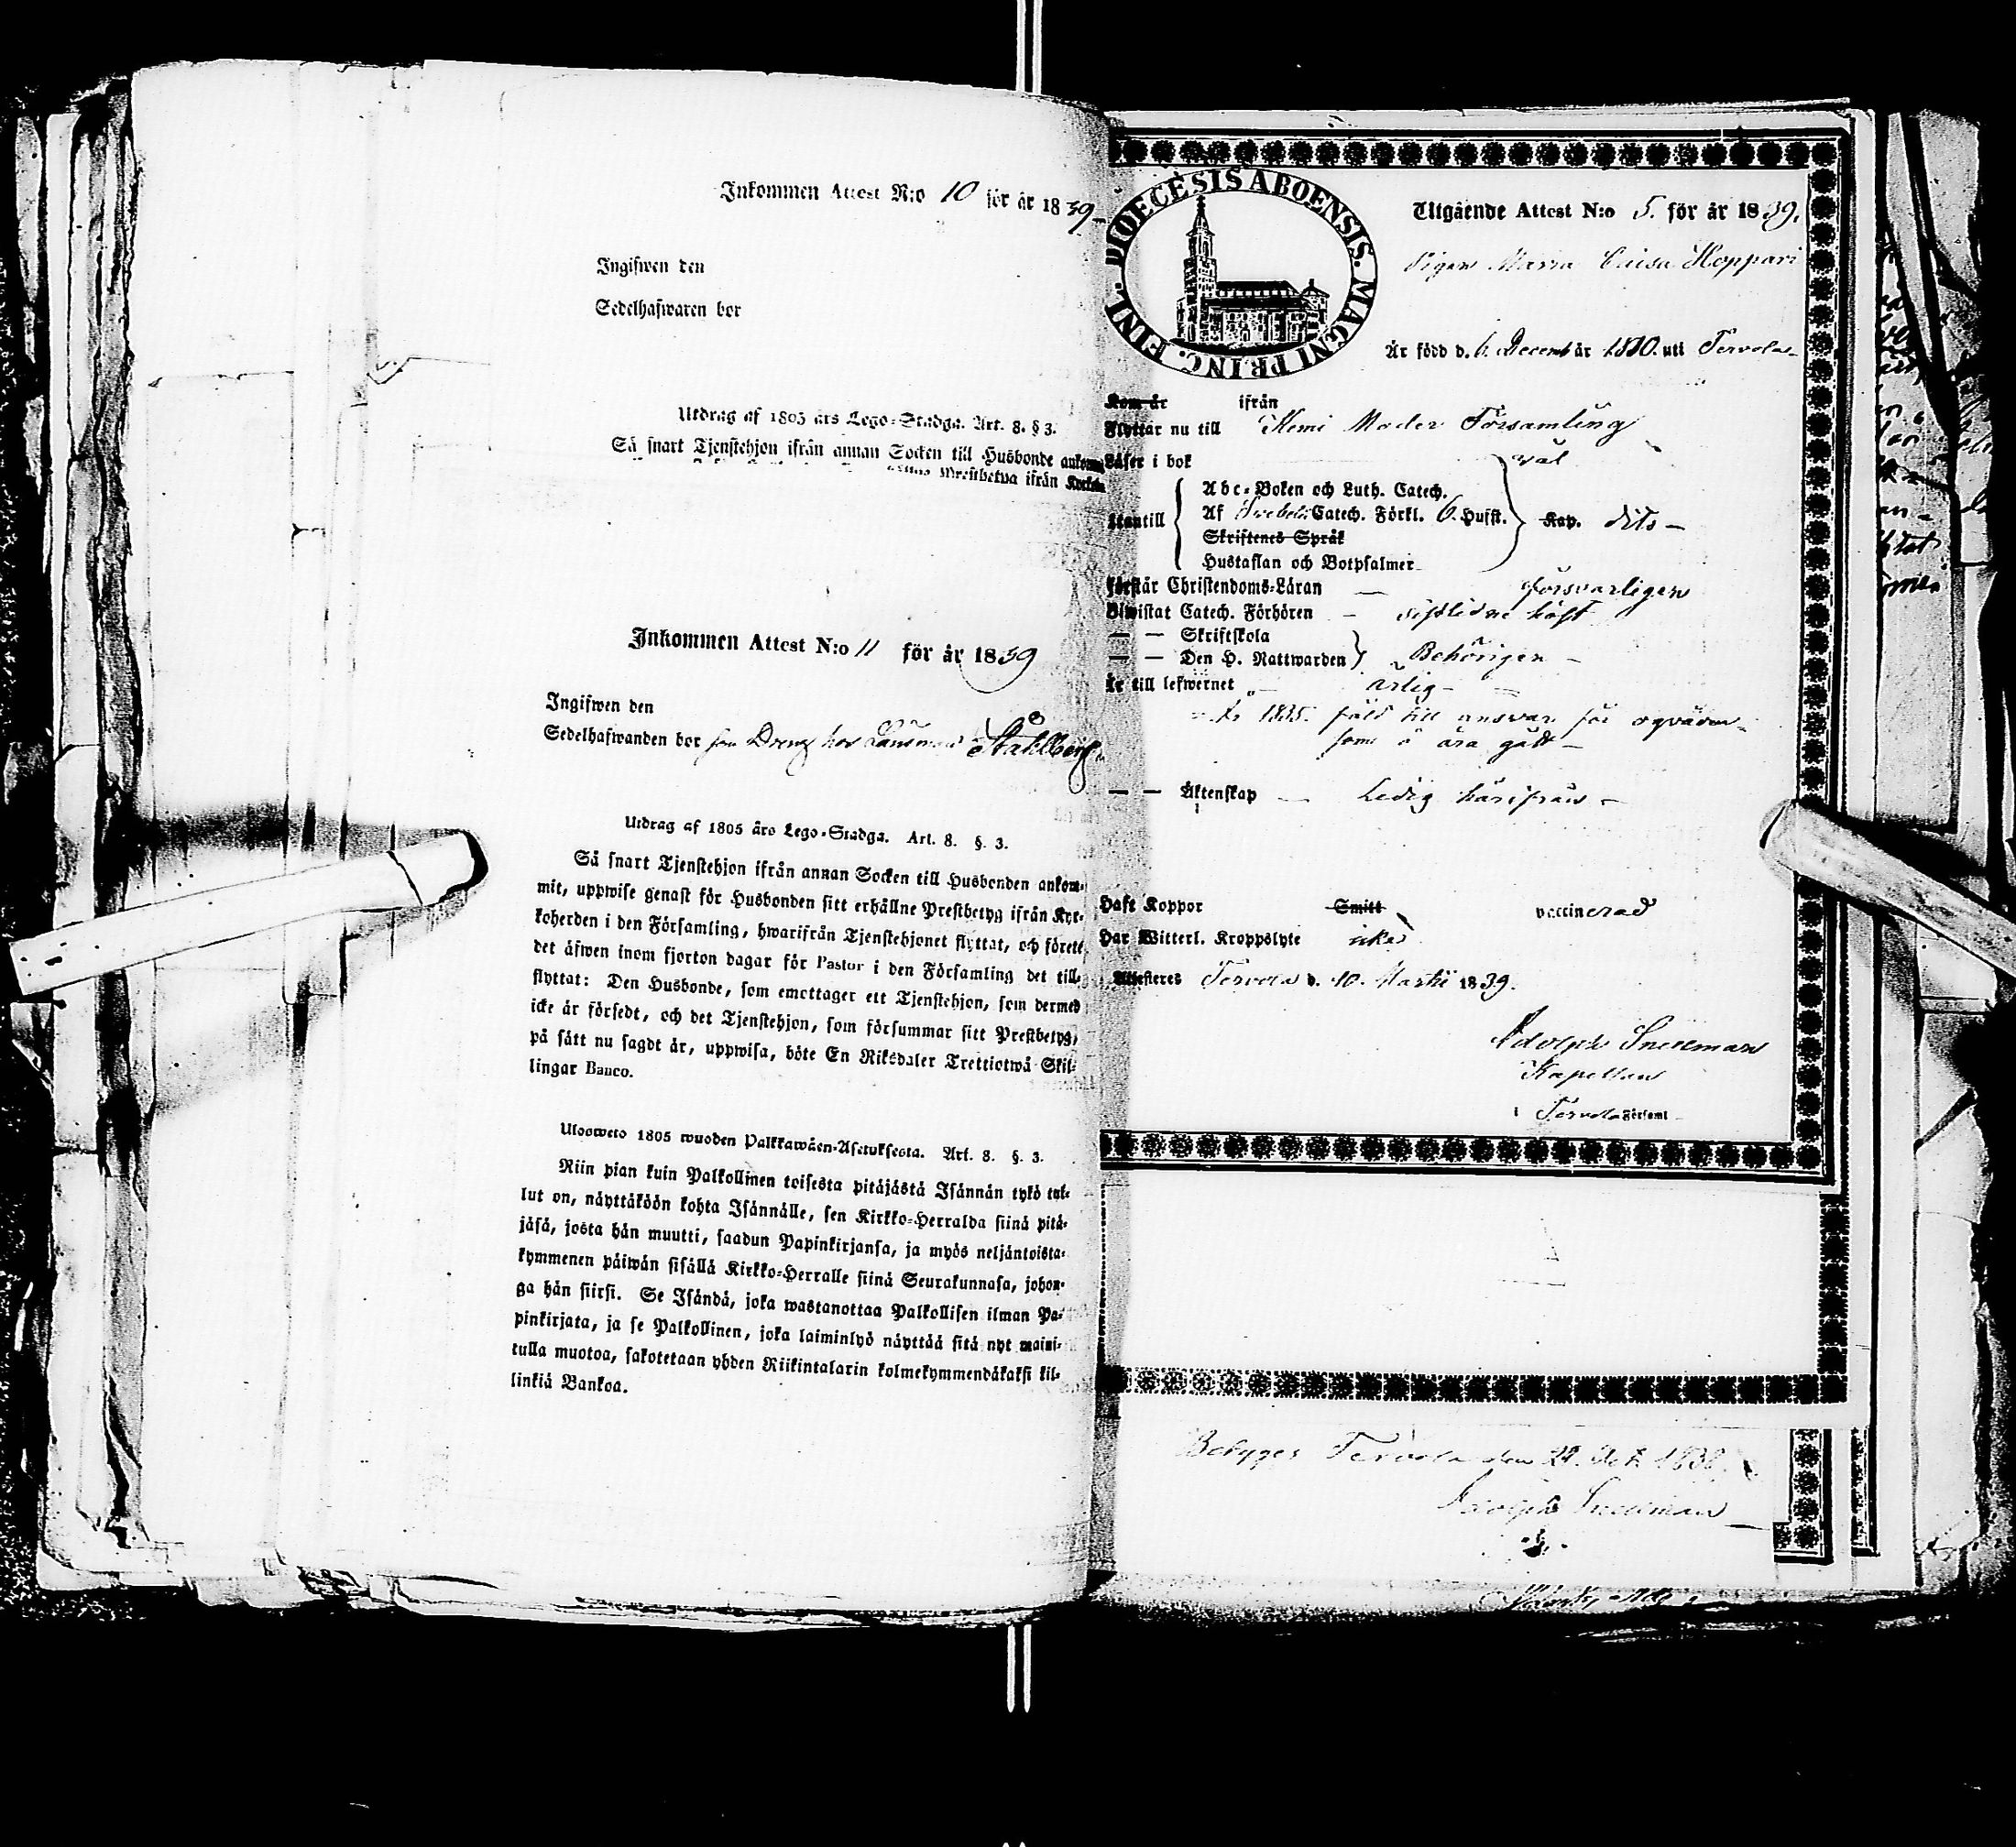 Inkommen Attest N:o 10 för år 1839
Ingifwen den
Sedelhafwaren bor
Utdrag af 1805 års Lego-Stadga. Art. 8. § 3.
Så snart Tjenstehjon ifrån annan Socken till Husbonde
Prestbetyg ifrån
Inkommen Attest N:o 11 för år 1839
Ingifwen den
Sedelhafwanden bor som Dreng hos Länsman Ståhlberg
Utdrag af 1805 års Lego-Stadga. Art. 8. §. 3.
Så snart Tjenstehjon ifrån annan Socken till Husbonden ankom-
mit, uppwise genast för Husbonden sitt erhållne Prestbetyg ifrån Kyr-
koherden i den Församling, hwarifrån Tjenstehjonet flyttat, och förete
det äfwen inom fjorton dagar för Pastor i den Församling det till-
flyttat: Den Husbonde, som emottager ett Tjenstehjon, som dermed
icke är försedt, och det Tjenstehjon, som försummar sitt Prestbetyg,
på sätt nu sagdt är, uppwisa, böte En Riksdaler Trettiotwå Skil-
lingar Banco.
Ulosweto 1805 wuoden Palkkawäen-Asetuksesta. Art. 8. §. 3.
Niin pian kuin Palkollinen toisesta pitäjästä Isännän tykö tul-
lut on, näyttäköön kohta Isännälle, sen Kirkko-Herralda siinä pitä-
jäsä, josta hän muutti, saadun Papinkirjansa, ja myös neljäntoista-
kymmenen päiwän sisällä Kirkko-Herralle siinä Seurakunnasa, johon-
ga hän siirsi. Se Isändä, joka wastanottaa Palkollisen ilman Pa-
pinkirjata, ja se Palkollinen, joka laiminlyö näyttää sitä nyt maini-
tulla muotoa, sakotetaan yhden Riikintalarin kolmekymmendäkaksi kil-
linkiä Bankoa.
DIOECESIS ABOENSIS. MAGNI PRINC. FINL.
Utgående Attest N:o 5. för år 1839.
Pigan Maria Caisa Hoppari
Är född d. 6. Decemb år 1810. uti Tervola
Kom år ifrån
Flyttar nu till Kemi Moder Församling
Läser i bok väl
Abc-Boken och Luth. Catech.
Utantill Af Svebelii Catech. Förkl. 6. Hufst. Kap. dito
Skriftenes Språk
Hustaflan och Botpsalmer
Förstår Christendoms-Läran försvarligen
Biwistat Catech. Förhören sistlidne höst
— — Skriftskola
— — Den H. Nattwarden Behörigen
Är till lefwernet ärlig
År 1835. fäld till ansvar för
som å ära gådt
— — Äktenskap Ledig härifrån
Haft Koppor Smitt vaccinerad
Har Witterl. Kroppslyte icke
Attesteres Tervola d. 10. Martii 1839.
Adolph Snellman
Kapellan
i Tervola Församl
Betyges Tervola den 24. Oct. 1838.
Adolph Snellman